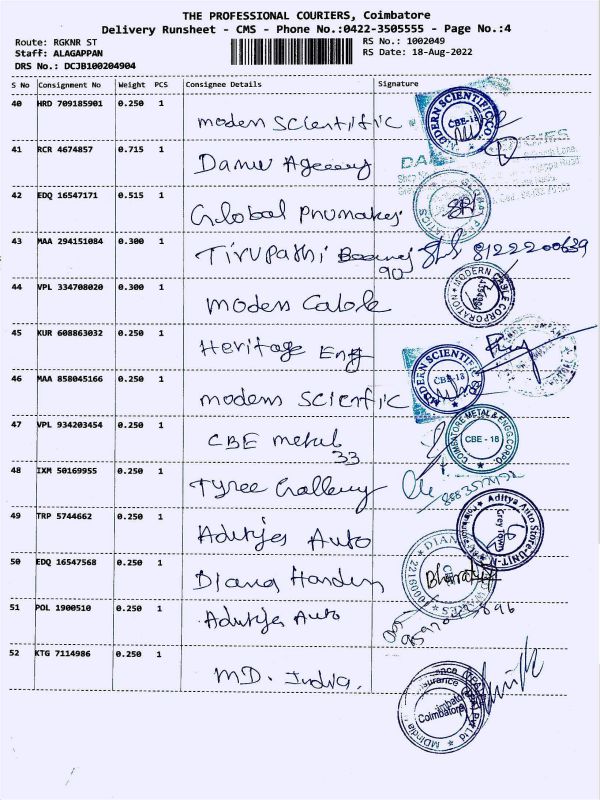 THE PROFESSIONAL COURIERS, Coimbatore
Delivery Runsheet - CMS - Phone No.:0422-3505555 - Page No.:4
Route: RGKNR ST
Staff: ALAGAPPAN
DRS No.: DCJB100204904
RS No.: 1002049
RS Date: 18-Aug-2022
S No Consignment No Weight PCS Consignee Details Signature
40 HRD 709185901 0.250 1
modern Scientific
MODERN SCIENTIFIC CO
CBE-18
41 RCR 4674857 0.715 1
42 EDQ 16547171 0.515 1
Global
43 MAA 294151084 0.300 1
Tirupathi
90
8122200639
44 VPL 334708020 0.300 1
modern Cable
MODERN CABLE CORPORATION
45 KUR 608863032 0.250 1
Heritage Eng
46 MAA 858045166 0.250 1
modern Scientific
MODERN SCIENTIFIC CO
CBE-18
47 VPL 934203454 0.250 1
CBE metal
33
COIMBATORE METAL & ENGG.CORPO.
CBE - 18
48 IXM 50169955 0.250 1
Tyree Gallery
49 TRP 5744662 0.250 1
Auto
Aditya Auto Store-UNIT-
Grey Town
50 EDQ 16547568 0.250 1
Diana
Bharathi
51 POL 1900510 0.250 1
Auto
52 KTG 7114986 0.250 1
MD. India.
Coimbatore